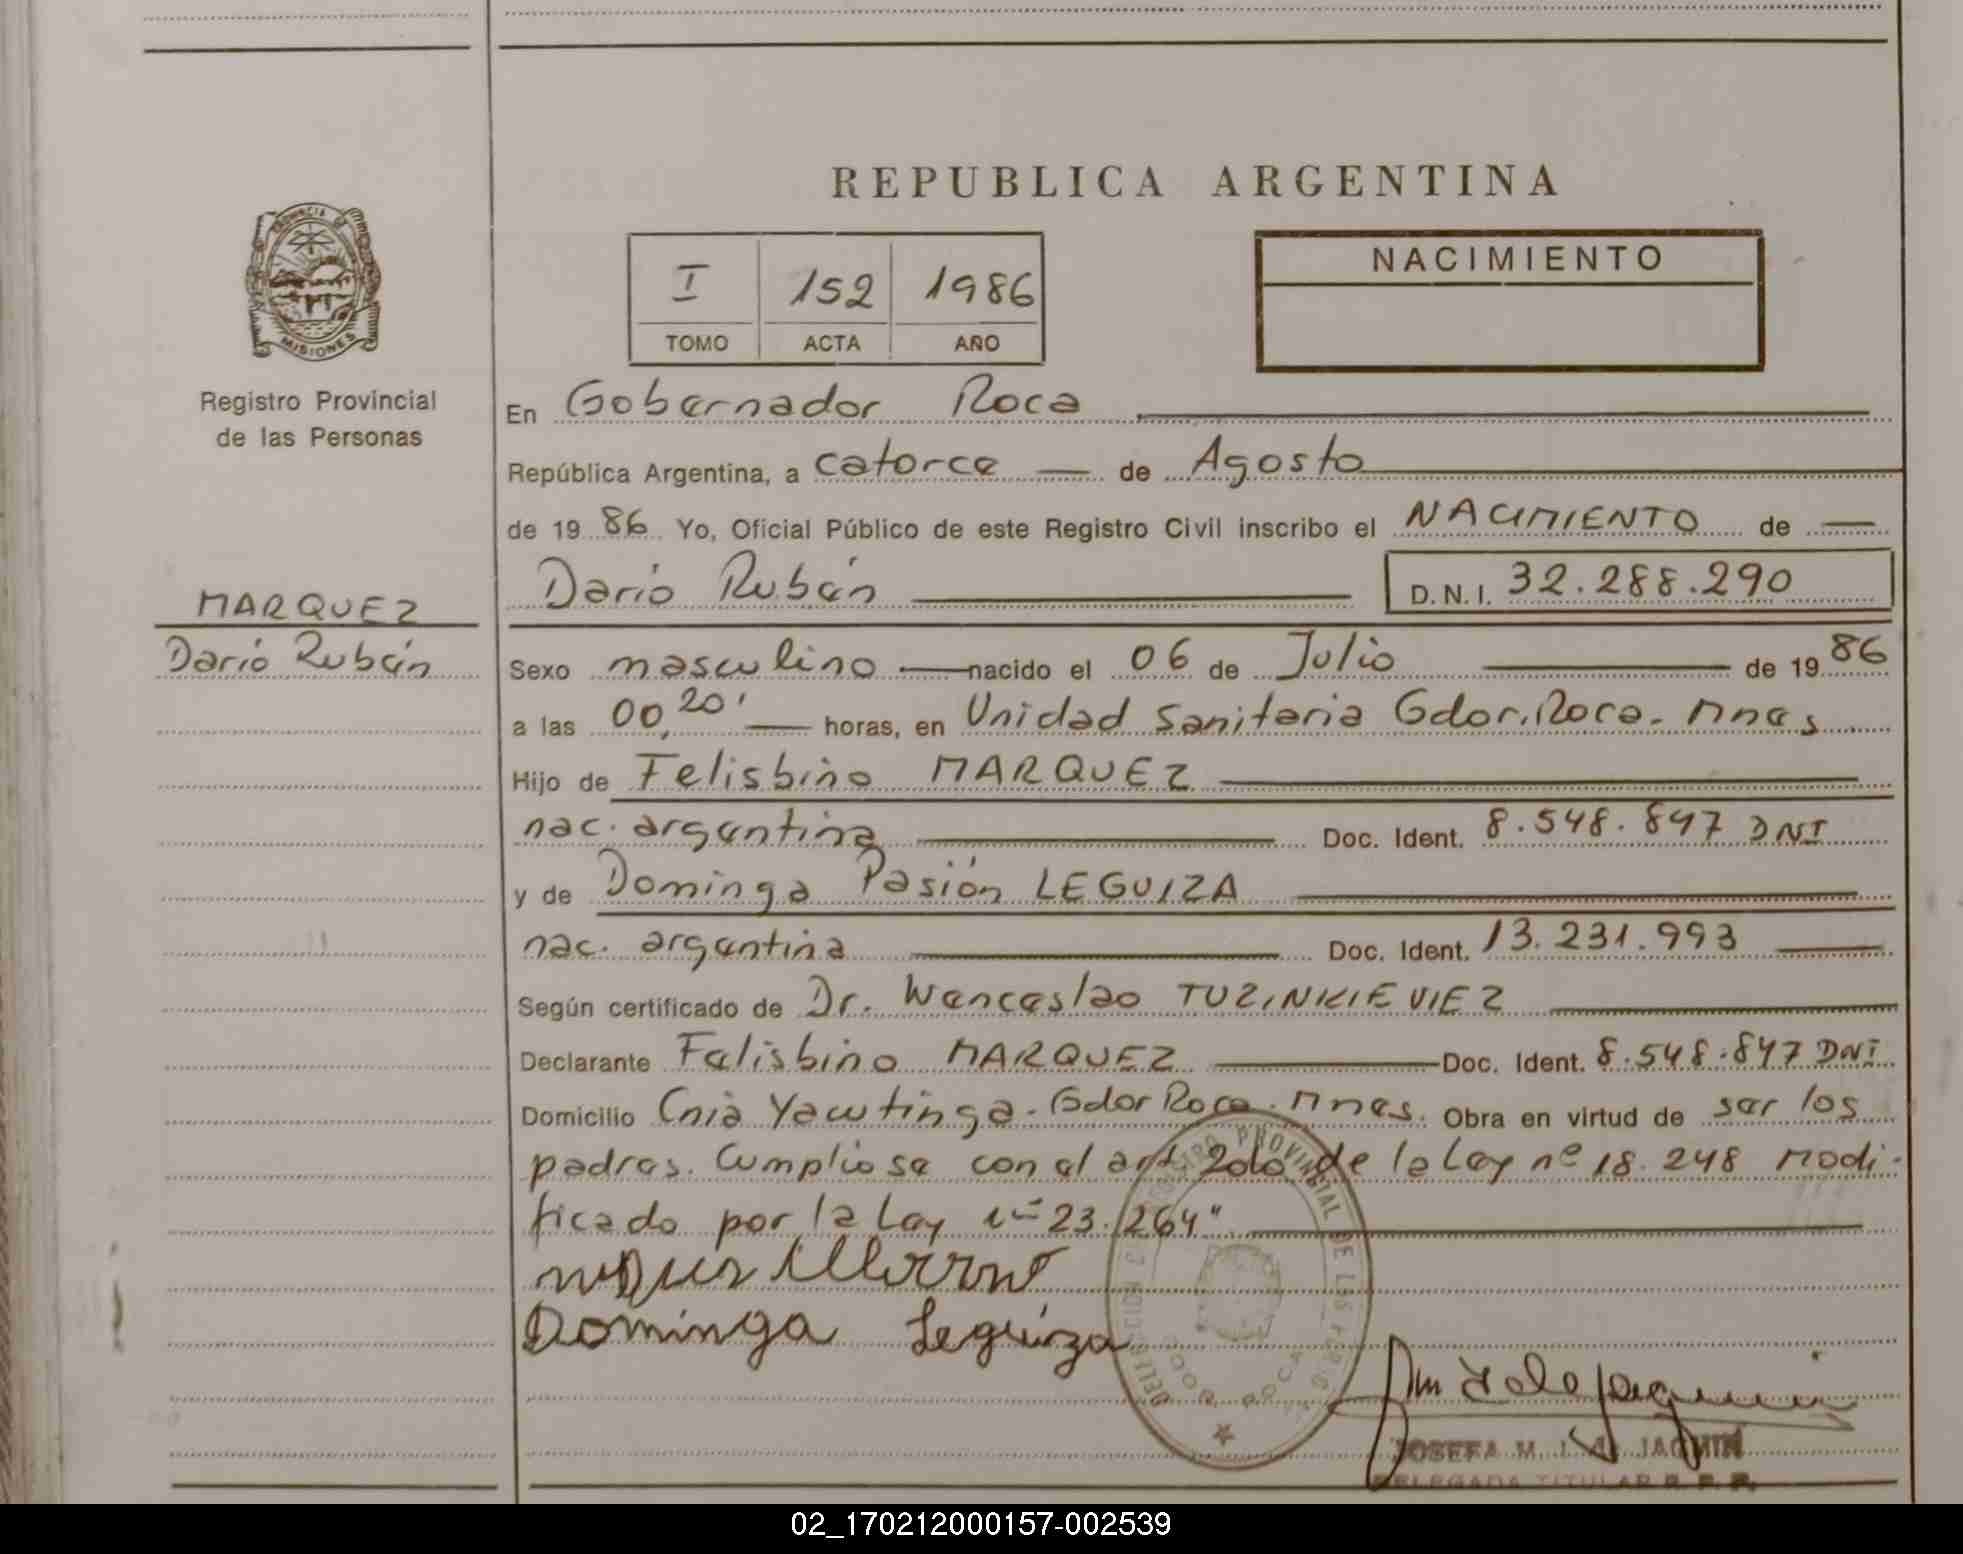 REPUBLICA ARGENTINA
PROVINCIA DE MISIONES
Registro Provincial
de las Personas
I 152 1986
TOMO ACTA AÑO
NACIMIENTO
En Gobernador Roca
República Argentina, a catorce de Agosto
de 19 86 Yo, Oficial Público de este Registro Civil inscribo el NACIMIENTO de
Darío Rubén D.N.I. 32.288.290
MARQUEZ
Darío Rubén
Sexo masculino nacido el 06 de Julio de 19 86
a las 00,20' horas, en Unidad Sanitaria Gdor. Roca. Mnes
Hijo de Felisbino MARQUEZ
nac. argentina Doc. Ident. 8.548.847 DNI
y de Dominga Pasión LEGUIZA
nac. argentina Doc. Ident. 13.231.993
Según certificado de Dr. Wenceslao TUZINKIEVIEZ
Declarante Felisbino MARQUEZ Doc. Ident. 8.548.847 DNI
Domicilio Cnia Yacutinga. Gdor Roca. Mnes. Obra en virtud de ser los
padres. Cumpliose con el art 2do de la Ley nº 18.248 Modi-
ficado por la Ley nº 23.264"
Dominga Leguiza
REGISTRO PROVINCIAL DE LAS PERSONAS
GDOR. ROCA
JOSEFA M. JAQMIN
DELEGADA TITULAR R. P. P.
02_170212000157-002539